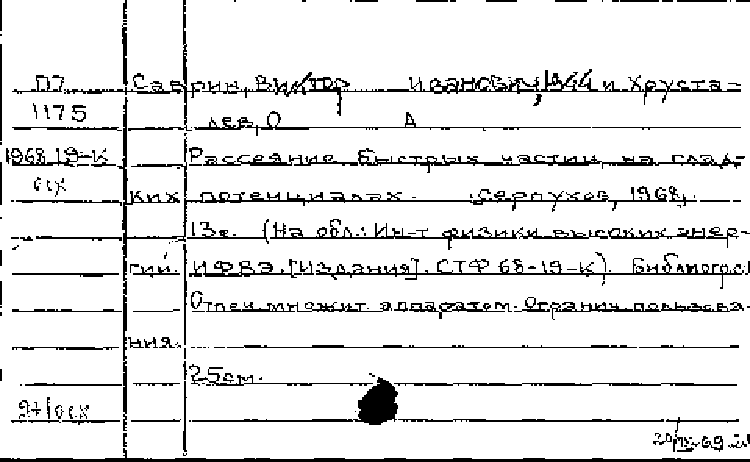 П7 Саврин, Виктор Иванович, 1944 и Хруста-
1175 лев, О А
1968 19-К Рассеяние быстрых частиц на глад-
осх ких потенциалах. Серпухов, 1968.
13с. (На обл.: Ин-т физики высоких энер-
гий. ИФВЭ. [Издания]. СТФ 68-19-К). Библиогр.
Отпеч. множит. аппаратом. Огранич. пользова-
ния.
25см.
9+1осх
69